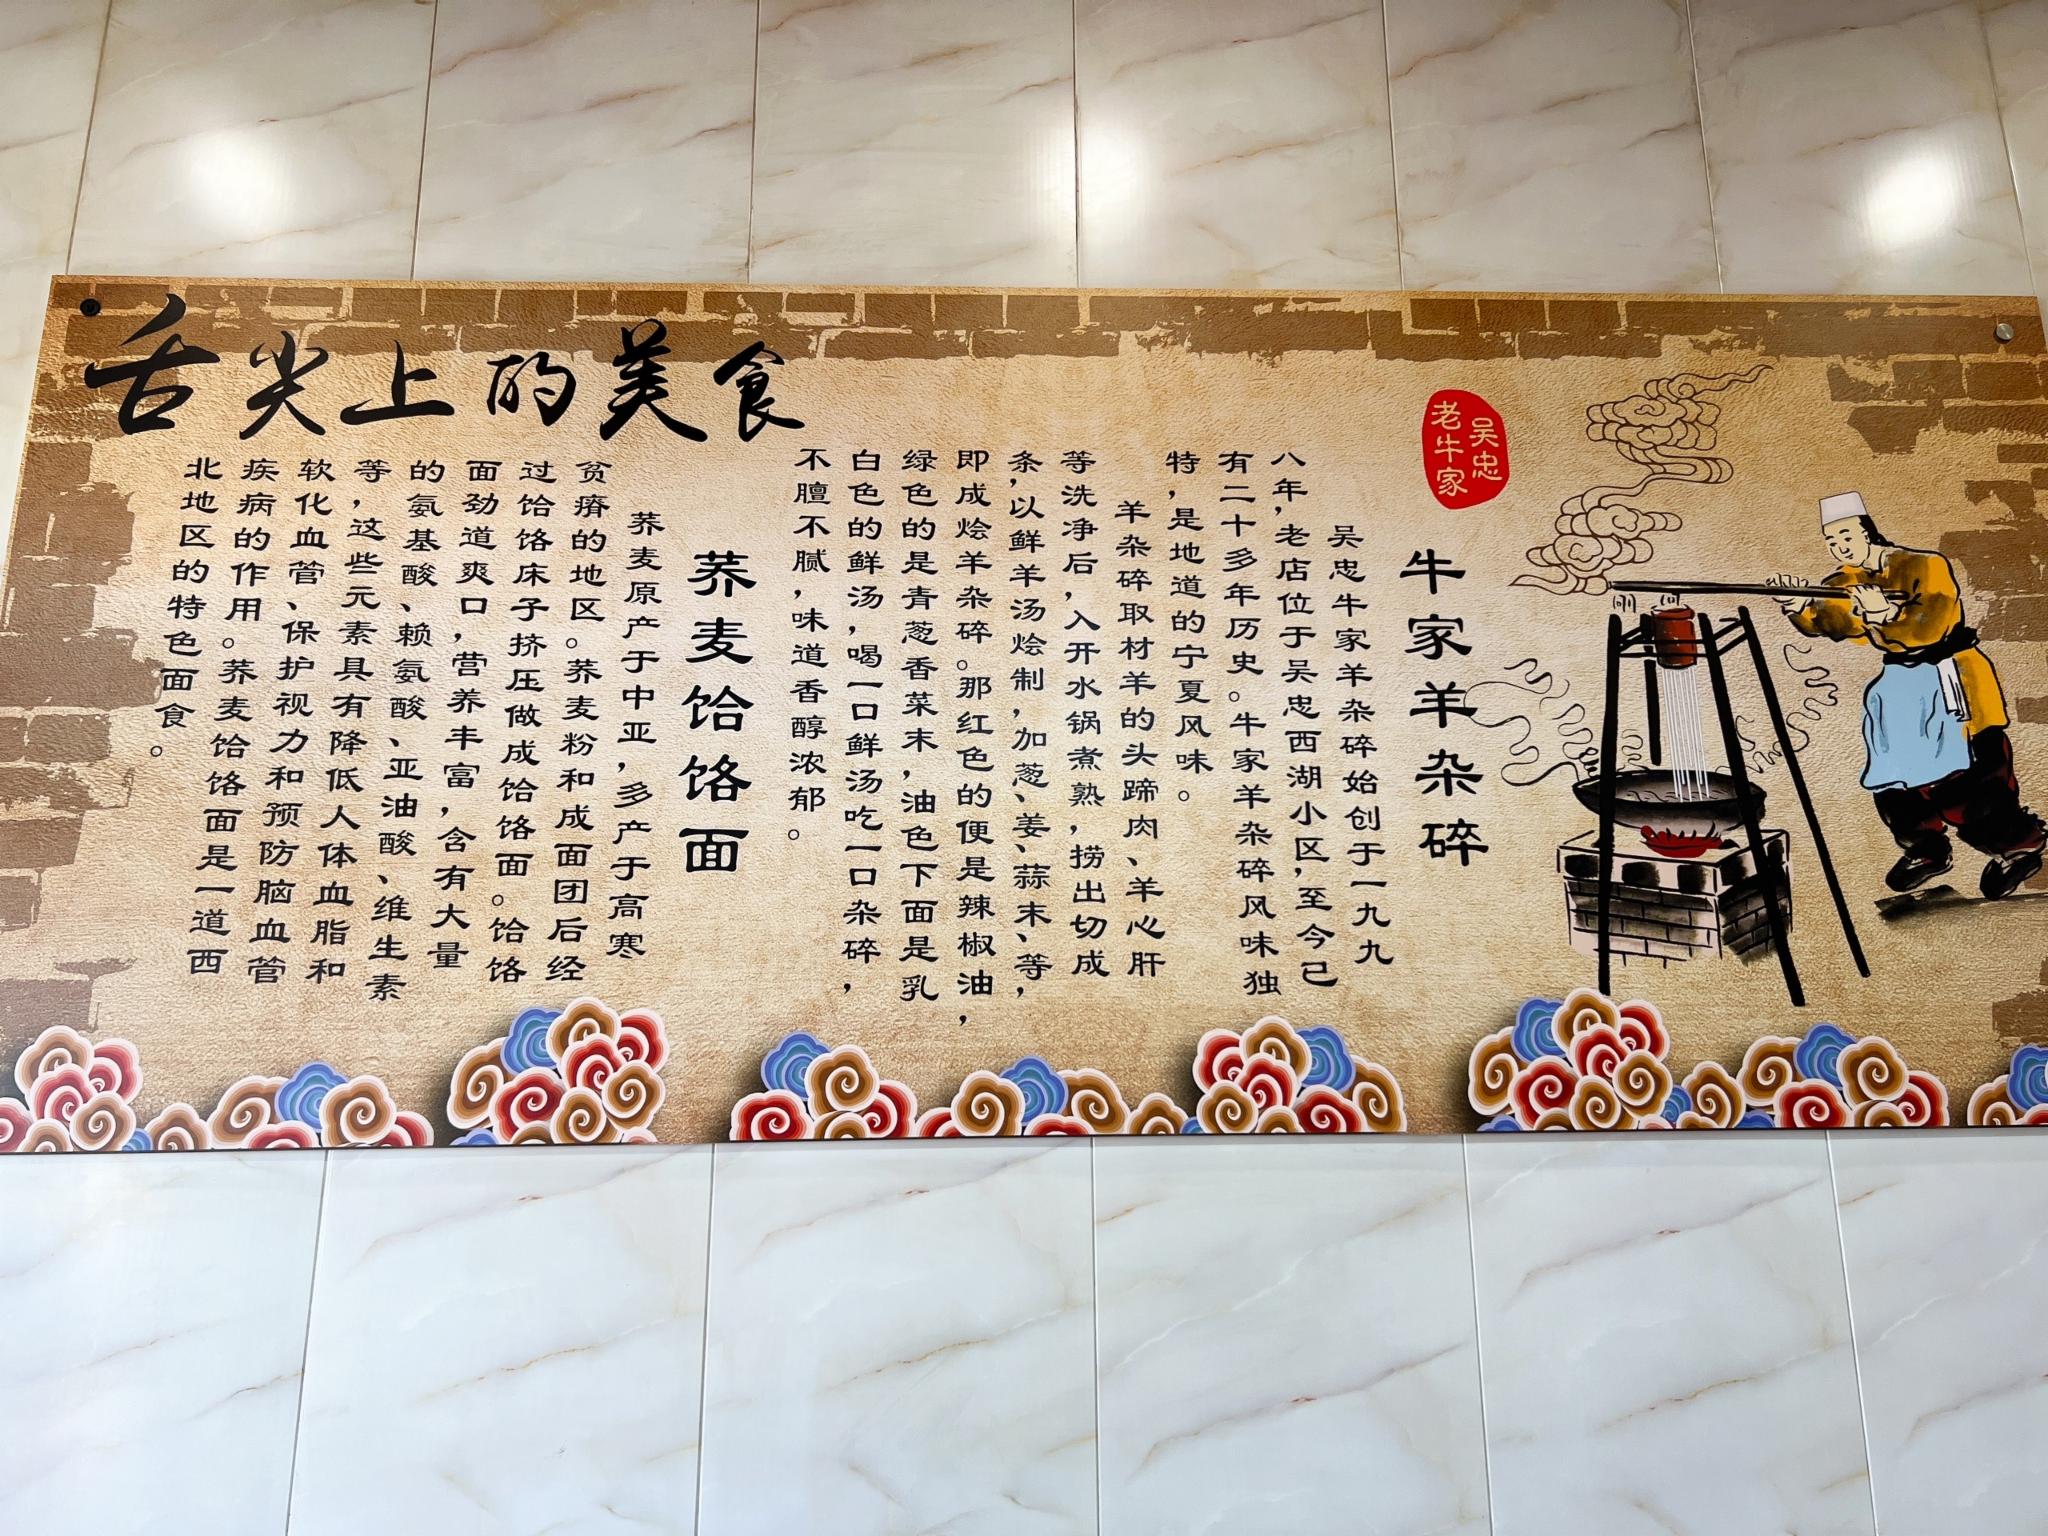 舌尖上的美食
吴忠
老牛家
牛家羊杂碎
吴忠牛家羊杂碎始创于一九九
八年，老店位于吴忠西湖小区，至今已
有二十多年历史。牛家羊杂碎风味独
特，是地道的宁夏风味。
羊杂碎取材羊的头蹄肉、羊心肝
等洗净后，入开水锅煮熟，捞出切成
条，以鲜羊汤烩制，加葱、姜、蒜末、等，
即成烩羊杂碎。那红色的便是辣椒油，
绿色的是青葱香菜末，油色下面是乳
白色的鲜汤，喝一口鲜汤吃一口杂碎，
不膻不腻，味道香醇浓郁。
荞麦饸饹面
荞麦原产于中亚，多产于高寒
贫瘠的地区。荞麦粉和成面团后经
过饸饹床子挤压做成饸饹面。饸饹
面劲道爽口，营养丰富，含有大量
的氨基酸、赖氨酸、亚油酸、维生素
等，这些元素具有降低人体血脂和
软化血管、保护视力和预防脑血管
疾病的作用。荞麦饸饹面是一道西
北地区的特色面食。